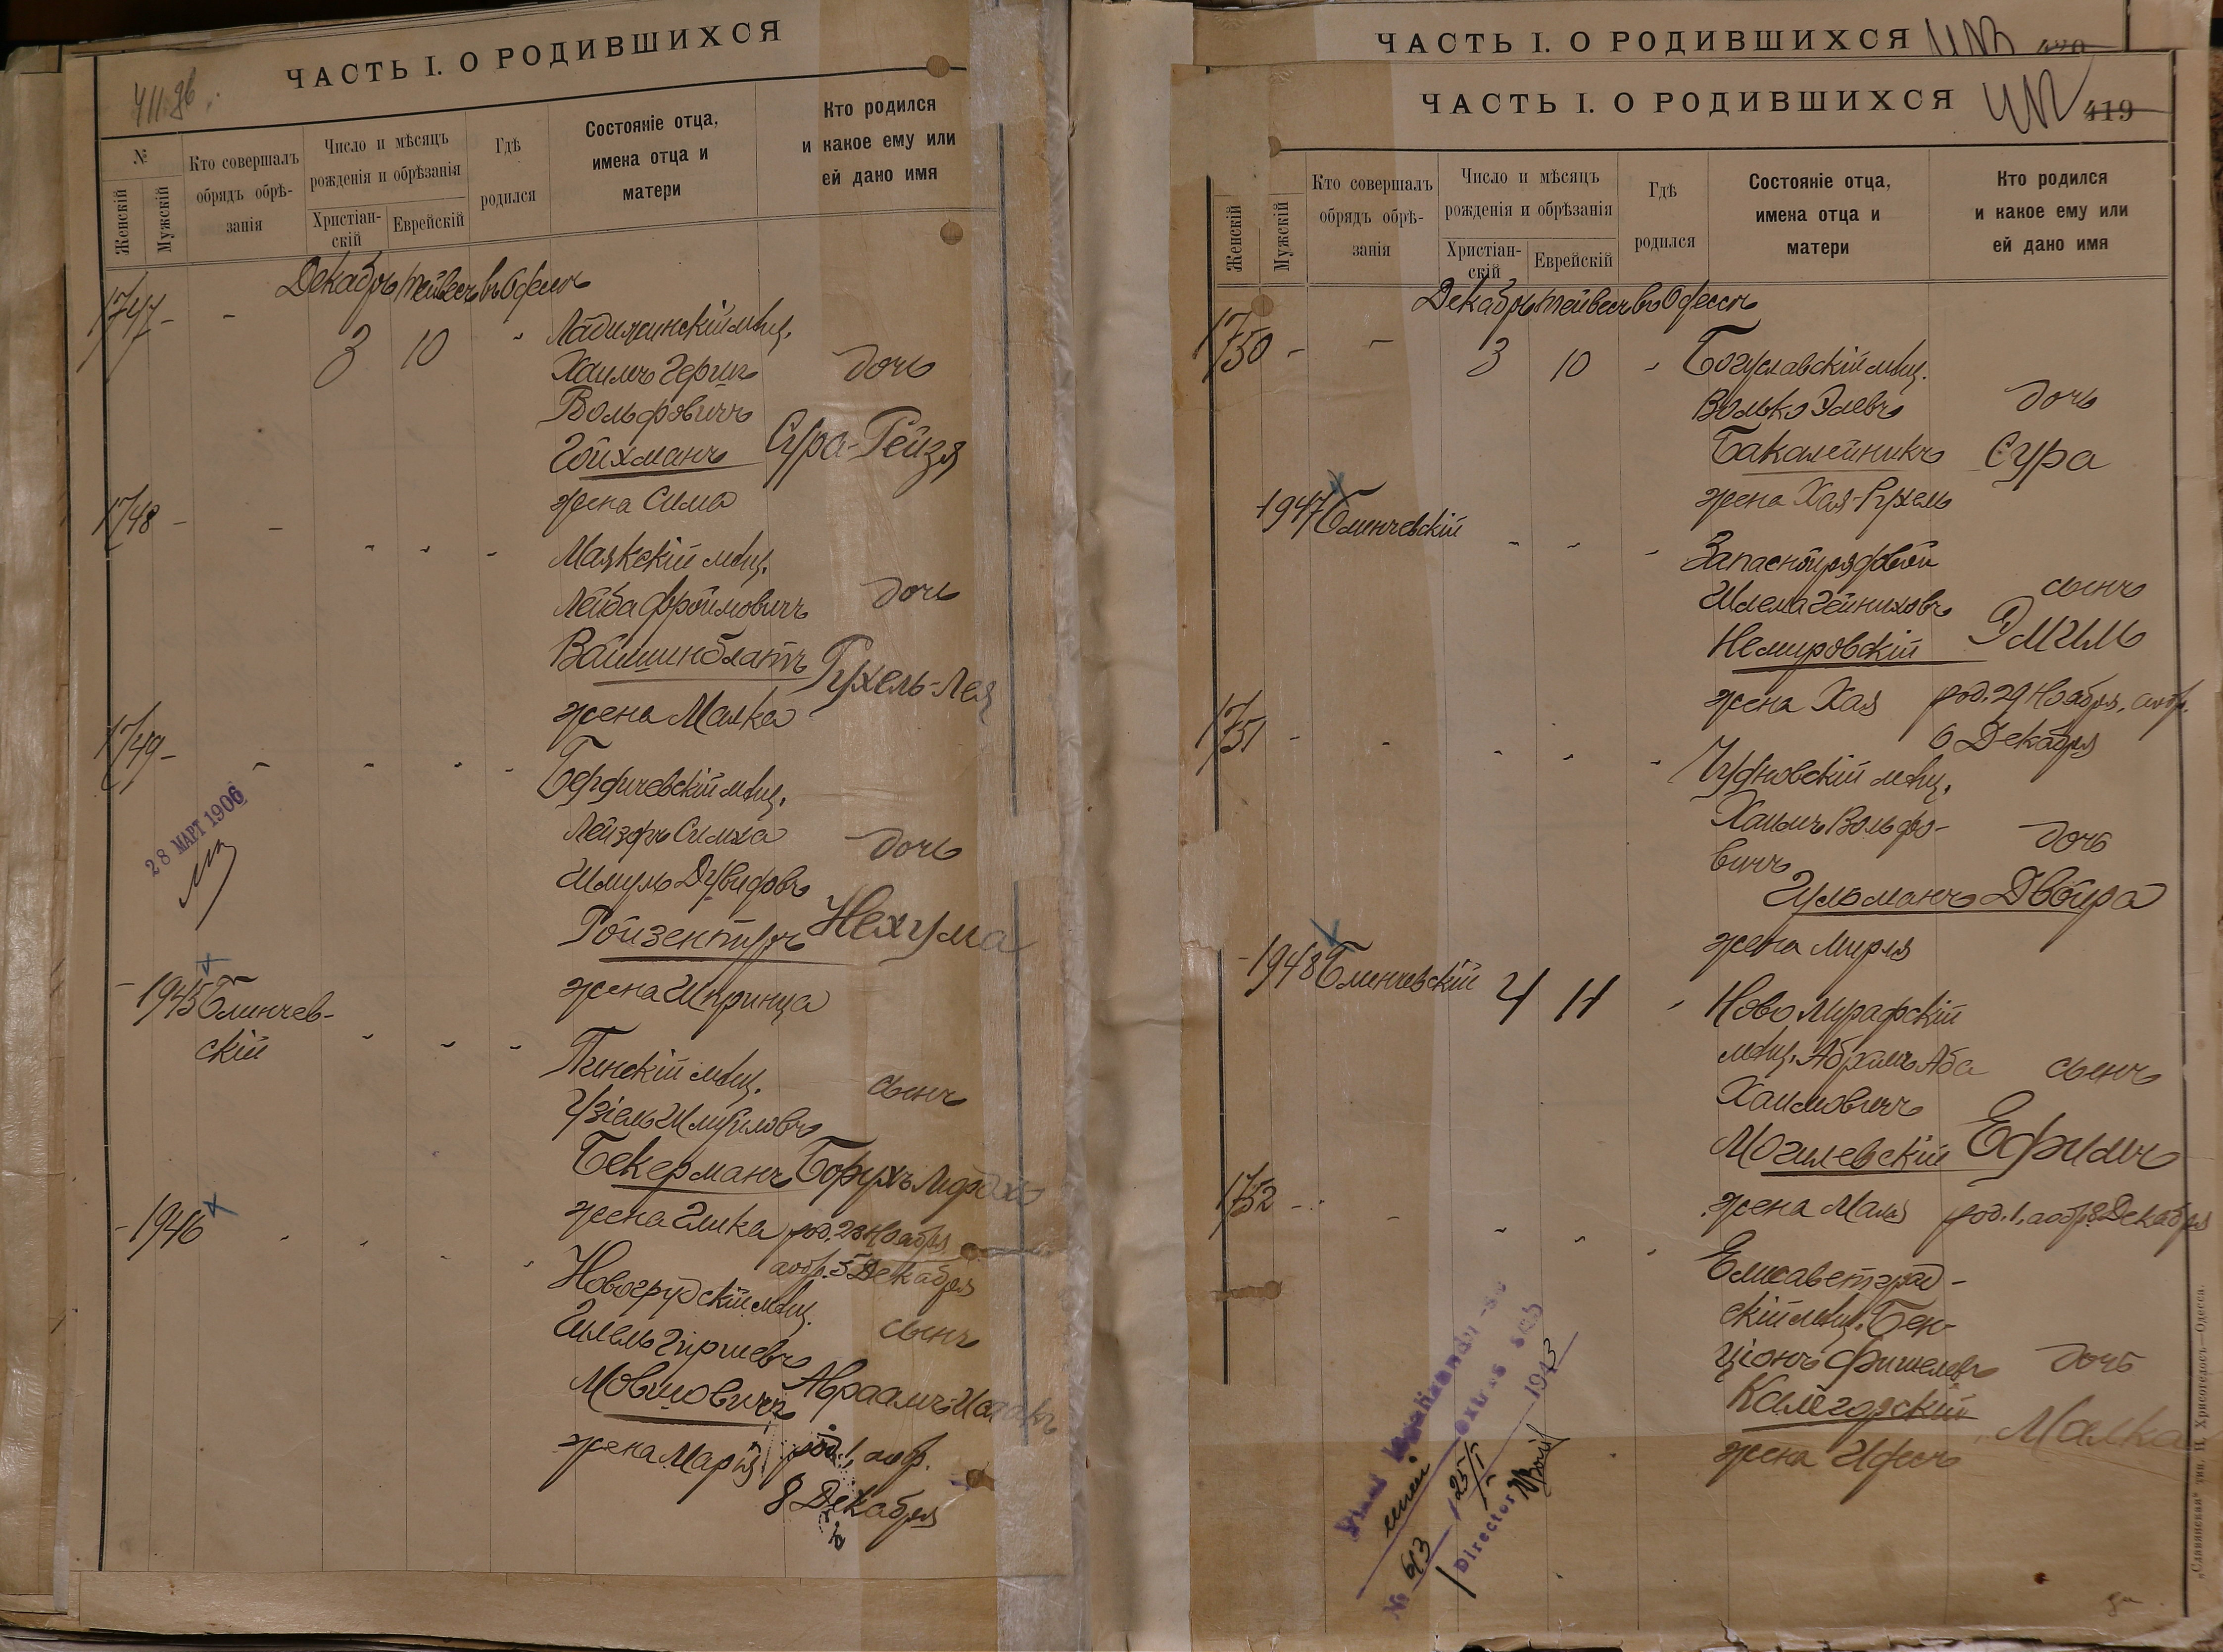 ЧАСТЬ I. О РОДИВШИХСЯ
№
Женскій
Мужскій
Кто совершалъ
обрядъ обрѣ-
занія
Число и мѣсяцъ
рожденія и обрѣзанія
Христіан-
скій
Еврейскій
Гдѣ
родился
Состояніе отца,
имена отца и
матери
Кто родился
и какое ему или
ей дано имя
Декабрь Тейвесъ въ Одессѣ
1747 - - 3 10 "
Ладижинскій мѣщ.
Хаимъ Герш
Вольфовичъ
Гойхманъ
жена Сима
дочь
Сура-Рейзя
1748 - - " " "
Маякскій мѣщ.
Лейба Фроимовичъ
Вайшинблатъ
жена Малка
дочь
Рухель-Лея
1749 - - " " "
Бердичевскій мѣщ.
Лейзеръ Симха
Шмуль Дувидовъ
Ройзентуръ
жена Шпринца
дочь
Нехума
28 МАРТ 1906
- 1945 Блинчев-
скій " " "
Пинскій мѣщ.
Узіель Шмуйловъ
Бекерманъ
жена Элика
сынъ
Борухъ
род. 28 Ноября
а обр. 5 Декабря
- 1946 " " " "
Новогрудскій мѣщ.
Гилель Гиршевъ
Мовшовичъ
жена Марія
сынъ
Авраамъ-Исаакъ
род. 1, а обр.
8 Декабря
ЧАСТЬ I. О РОДИВШИХСЯ
ЧАСТЬ I. О РОДИВШИХСЯ
419
Женскій
Мужскій
Кто совершалъ
обрядъ обрѣ-
занія
Число и мѣсяцъ
рожденія и обрѣзанія
Христіан-
скій
Еврейскій
Гдѣ
родился
Состояніе отца,
имена отца и
матери
Кто родился
и какое ему или
ей дано имя
Декабрь Тейвесъ въ Одессѣ
1750 - - 3 10 "
Богуславскій мѣщ.
Волько Элевъ
Бакалейникъ
жена Хая-Рухель
дочь
Сура
- 1947 Блинчевскій " " "
Запасной рядовой
Шлема Гейниховъ
Немировскій
жена Хая
сынъ
Эмиль
род. 29 Ноября, а обр.
6 Декабря
1751 - - " " "
Чудновскій мѣщ.
Хаимъ Вольфо-
вичъ
Гульманъ
жена Мирля
дочь
Двойра
- 1948 Блинчевскій 4 11 "
Ново Мирафскій
мѣщ. Абрамъ Аба
Хаимовичъ
Могилевскій
жена Маля
сынъ
Ефимъ
род. 1, а обр. 8 Декабря
1752 - - " " "
Елисаветград-
скій мѣщ. Бен-
ціонъ Фишелевъ
Калегорскій
жена Идесъ
дочь
Малка
№ 613 1943
Director
„Славянская“ тип. Н. Хрисогелосъ—Одесса.